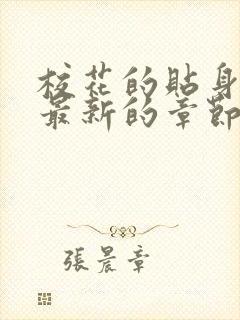 校花的貼身
最新的章節
張晨章